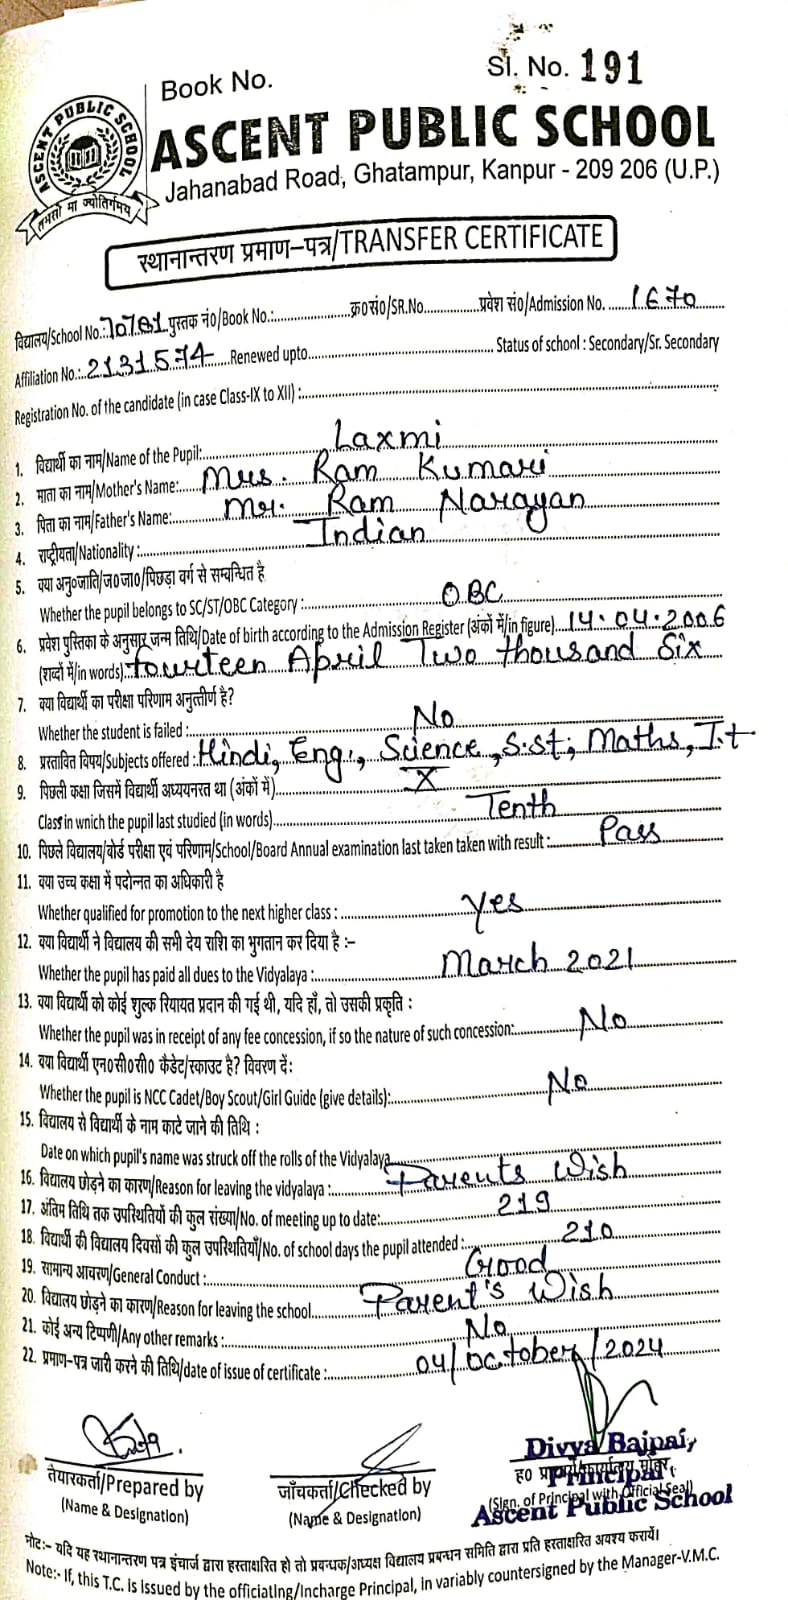 Book No.
Sl. No. 191
ASCENT PUBLIC SCHOOL
ASCENT PUBLIC SCHOOL
तमसो मा ज्योतिर्गमय
Jahanabad Road, Ghatampur, Kanpur - 209 206 (U.P.)
स्थानान्तरण प्रमाण-पत्र/TRANSFER CERTIFICATE
विद्यालय/School No.: 70781 पुस्तक नं०/Book No.: क्र०सं०/SR.No. प्रवेश सं०/Admission No. 1670
Affiliation No.: 2131574 Renewed upto Status of school : Secondary/Sr. Secondary
Registration No. of the candidate (in case Class-IX to XII) :
1. विद्यार्थी का नाम/Name of the Pupil: Laxmi
2. माता का नाम/Mother's Name: Mrs. Ram Kumari
3. पिता का नाम/Father's Name: Mr. Ram Narayan
4. राष्ट्रीयता/Nationality : Indian
5. क्या अनु०जाति/ज०जा०/पिछड़ा वर्ग से सम्बन्धित है
Whether the pupil belongs to SC/ST/OBC Category : OBC
6. प्रवेश पुस्तिका के अनुसार जन्म तिथि/Date of birth according to the Admission Register (अंकों में/in figure) 14.04.2006
(शब्दों में/in words) fourteen April Two thousand Six
7. क्या विद्यार्थी का परीक्षा परिणाम अनुत्तीर्ण है?
Whether the student is failed : No
8. प्रस्तावित विषय/Subjects offered : Hindi, Eng., Science, S.st; Maths, I.t
9. पिछली कक्षा जिसमें विद्यार्थी अध्ययनरत था (अंकों में) X
Class in wnich the pupil last studied (in words) Tenth
10. पिछले विद्यालय/बोर्ड परीक्षा एवं परिणाम/School/Board Annual examination last taken taken with result : Pass
11. क्या उच्च कक्षा में पदोन्नत का अधिकारी है
Whether qualified for promotion to the next higher class : Yes
12. क्या विद्यार्थी ने विद्यालय की सभी देय राशि का भुगतान कर दिया है :-
Whether the pupil has paid all dues to the Vidyalaya : March 2021
13. क्या विद्यार्थी को कोई शुल्क रियायत प्रदान की गई थी, यदि हाँ, तो उसकी प्रकृति :
Whether the pupil was in receipt of any fee concession, if so the nature of such concession: No
14. क्या विद्यार्थी एन०सी०सी० कैडेट/स्काउट है? विवरण दें:
Whether the pupil is NCC Cadet/Boy Scout/Girl Guide (give details): No
15. विद्यालय से विद्यार्थी के नाम काटे जाने की तिथि :
Date on which pupil's name was struck off the rolls of the Vidyalaya
16. विद्यालय छोड़ने का कारण/Reason for leaving the vidyalaya : Parents Wish
17. अंतिम तिथि तक उपस्थितियों की कुल संख्या/No. of meeting up to date: 219
18. विद्यार्थी की विद्यालय दिवसों की कुल उपस्थितियाँ/No. of school days the pupil attended : 210
19. सामान्य आचरण/General Conduct : Good
20. विद्यालय छोड़ने का कारण/Reason for leaving the school Parent's Wish
21. कोई अन्य टिप्पणी/Any other remarks : No
22. प्रमाण-पत्र जारी करने की तिथि/date of issue of certificate : 04/October/2024
तैयारकर्ता/Prepared by
(Name & Designation)
जाँचकर्ता/Checked by
(Name & Designation)
Divya Bajpai
ह०
Principal
(Sign. of Principal with Official Seal)
Ascent Public School
नोट:- यदि यह स्थानान्तरण पत्र इंचार्ज द्वारा हस्ताक्षरित हो तो प्रबन्धक/अध्यक्ष विद्यालय प्रबन्धन समिति द्वारा प्रति हस्ताक्षरित अवश्य करायें।
Note:- If, this T.C. is Issued by the officiating/Incharge Principal, in variably countersigned by the Manager-V.M.C.